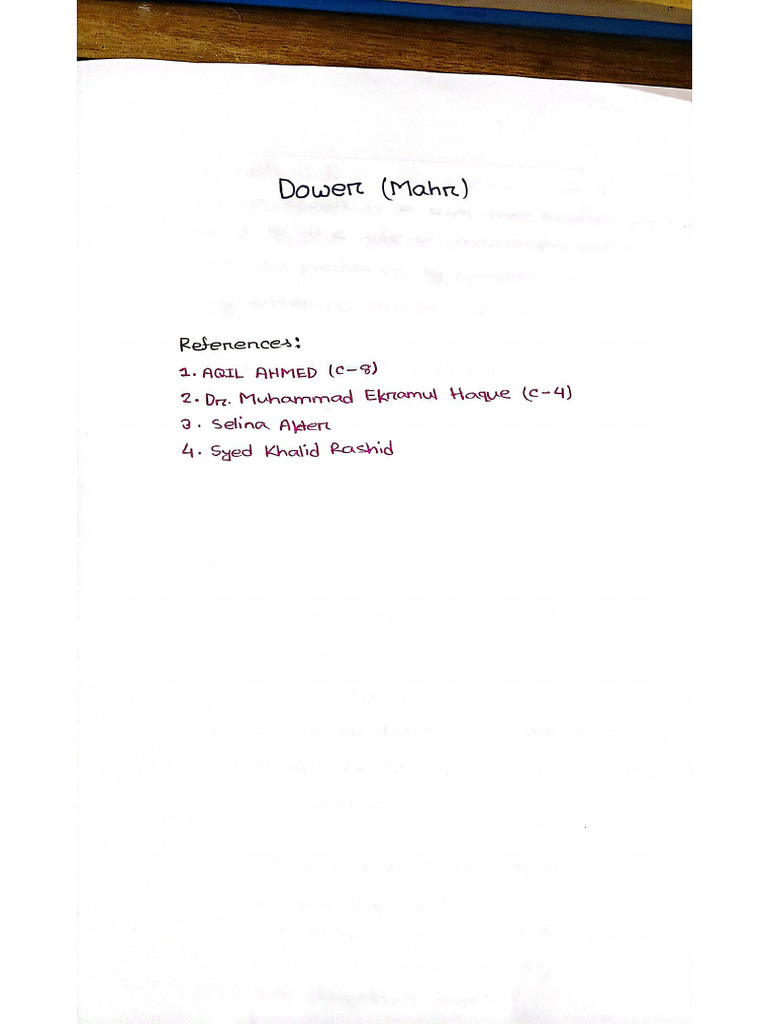 Dower (Mahr)
References:
1. AQIL AHMED (C-8)
2. Dr. Muhammad Ekramul Haque (C-4)
3. Selina Akter
4. Syed Khalid Rashid